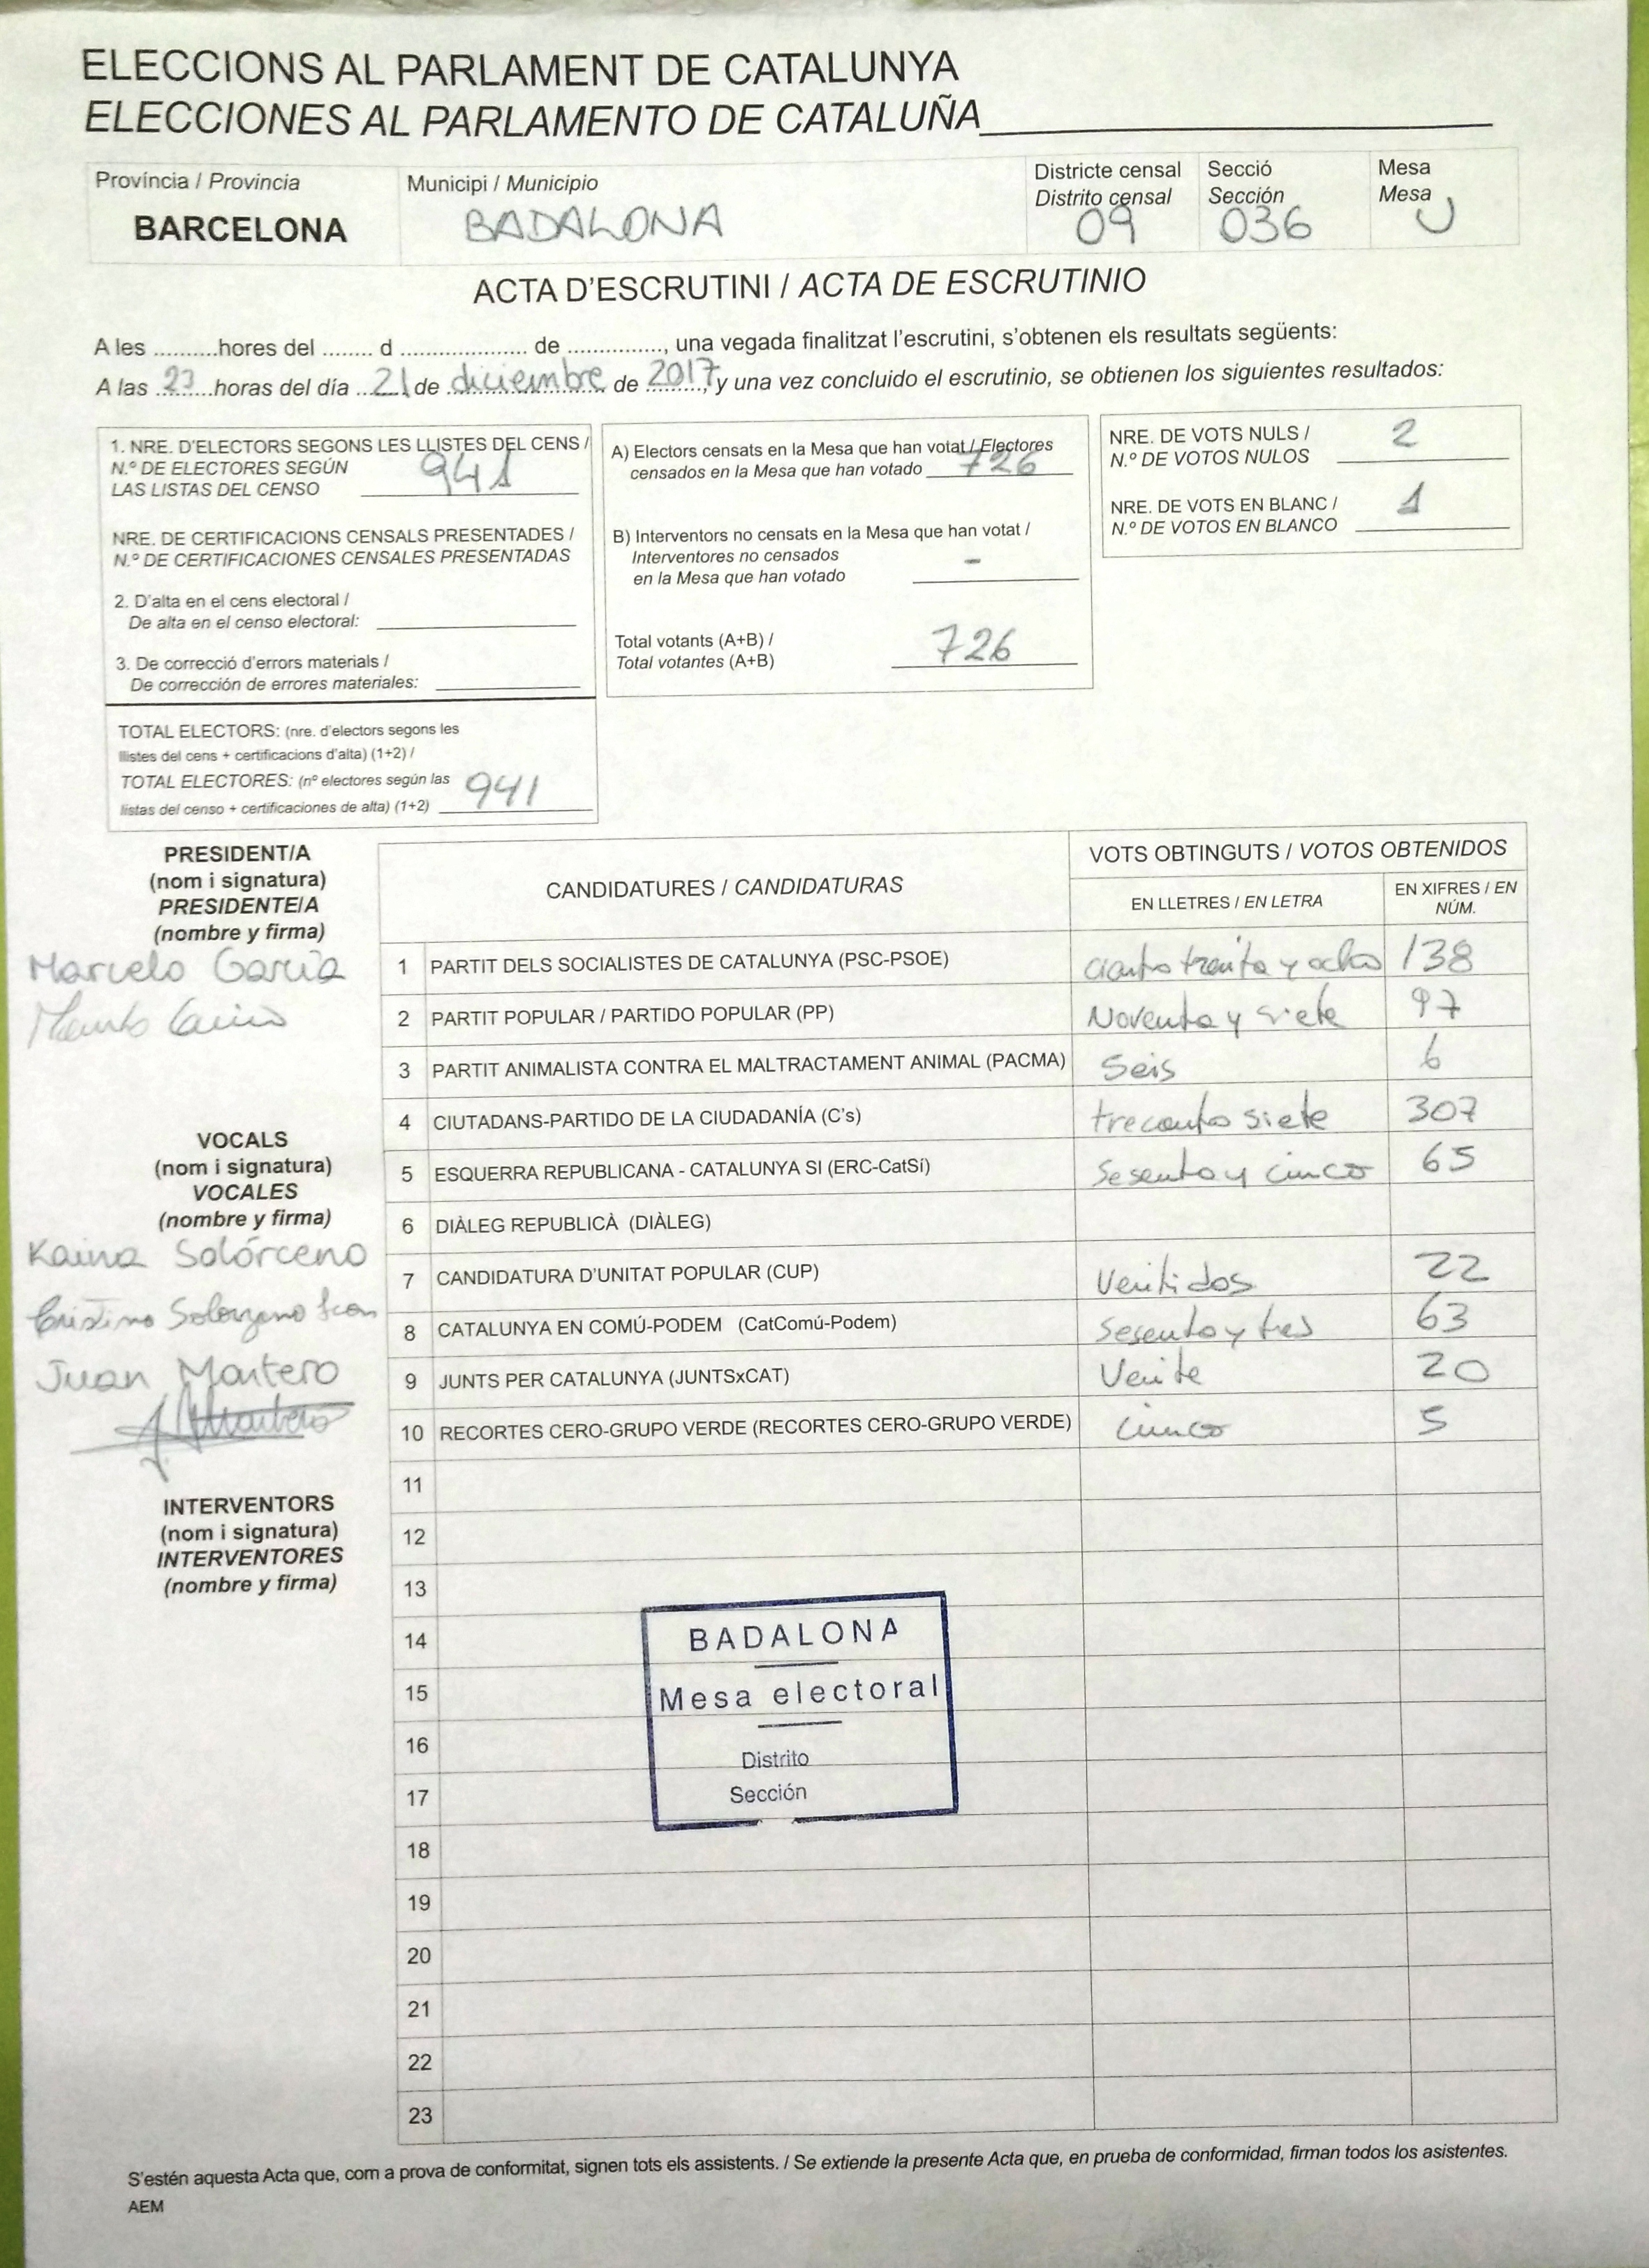 ELECCIONS AL PARLAMENT DE CATALUNYA
ELECCIONES AL PARLAMENTO DE CATALUÑA
Província / Provincia
BARCELONA
Municipi / Municipio
BADALONA
Districte censal
Distrito censal
09
Secció
Sección
036
Mesa
Mesa
U
ACTA D'ESCRUTINI / ACTA DE ESCRUTINIO
A les ..........hores del ........ d .................... de ..............., una vegada finalitzat l'escrutini, s'obtenen els resultats següents:
A las 23 horas del día 21 de diciembre de 2017, y una vez concluido el escrutinio, se obtienen los siguientes resultados:
1. NRE. D'ELECTORS SEGONS LES LLISTES DEL CENS /
N.º DE ELECTORES SEGÚN
LAS LISTAS DEL CENSO 941
NRE. DE CERTIFICACIONS CENSALS PRESENTADES /
N.º DE CERTIFICACIONES CENSALES PRESENTADAS
2. D'alta en el cens electoral /
De alta en el censo electoral:
3. De correcció d'errors materials /
De corrección de errores materiales:
TOTAL ELECTORS: (nre. d'electors segons les
llistes del cens + certificacions d'alta) (1+2) /
TOTAL ELECTORES: (nº electores según las
listas del censo + certificaciones de alta) (1+2) 941
A) Electors censats en la Mesa que han votat / Electores
censados en la Mesa que han votado 726
B) Interventors no censats en la Mesa que han votat /
Interventores no censados
en la Mesa que han votado -
Total votants (A+B) /
Total votantes (A+B) 726
NRE. DE VOTS NULS /
N.º DE VOTOS NULOS 2
NRE. DE VOTS EN BLANC /
N.º DE VOTOS EN BLANCO 1
PRESIDENT/A
(nom i signatura)
PRESIDENTE/A
(nombre y firma)
Marcelo García
VOCALS
(nom i signatura)
VOCALES
(nombre y firma)
Kaina Solórceno
Juan Montero
INTERVENTORS
(nom i signatura)
INTERVENTORES
(nombre y firma)
CANDIDATURES / CANDIDATURAS
VOTS OBTINGUTS / VOTOS OBTENIDOS
EN LLETRES / EN LETRA
EN XIFRES / EN NÚM.
1 PARTIT DELS SOCIALISTES DE CATALUNYA (PSC-PSOE) ciento treinta y ocho 138
2 PARTIT POPULAR / PARTIDO POPULAR (PP) Noventa y siete 97
3 PARTIT ANIMALISTA CONTRA EL MALTRACTAMENT ANIMAL (PACMA) Seis 6
4 CIUTADANS-PARTIDO DE LA CIUDADANÍA (C's) siete 307
5 ESQUERRA REPUBLICANA - CATALUNYA SI (ERC-CatSí) Sesenta y cinco 65
6 DIÀLEG REPUBLICÀ (DIÀLEG)
7 CANDIDATURA D'UNITAT POPULAR (CUP) Ventidos 22
8 CATALUNYA EN COMÚ-PODEM (CatComú-Podem) Sesenta y tres 63
9 JUNTS PER CATALUNYA (JUNTSxCAT) Veinte 20
10 RECORTES CERO-GRUPO VERDE (RECORTES CERO-GRUPO VERDE) cinco 5
11
12
13
14
15
16
17
18
19
20
21
22
23
BADALONA
Mesa electoral
Distrito
Sección
S'estén aquesta Acta que, com a prova de conformitat, signen tots els assistents. / Se extiende la presente Acta que, en prueba de conformidad, firman todos los asistentes.
AEM